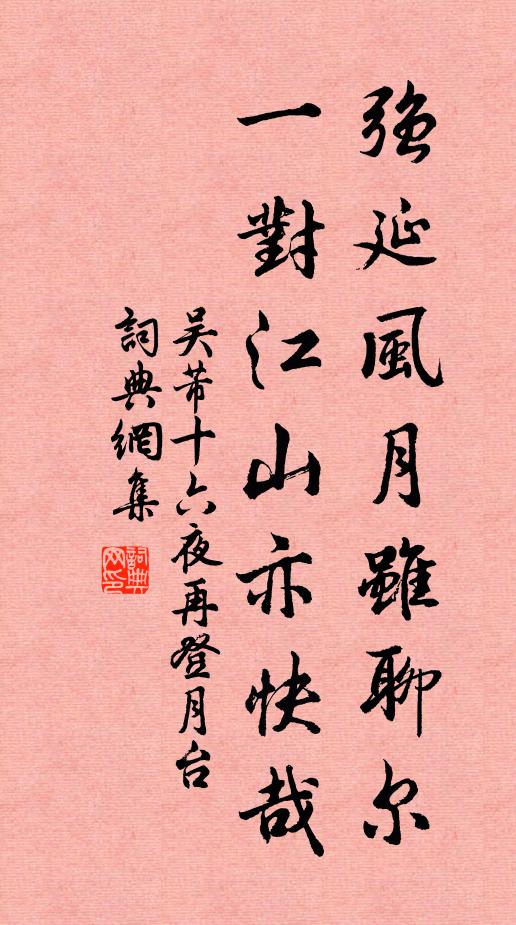 強延風月雖聊尔
一對江山亦快哉
吴芾十六夜再登月台
詞典網集
詞典网印